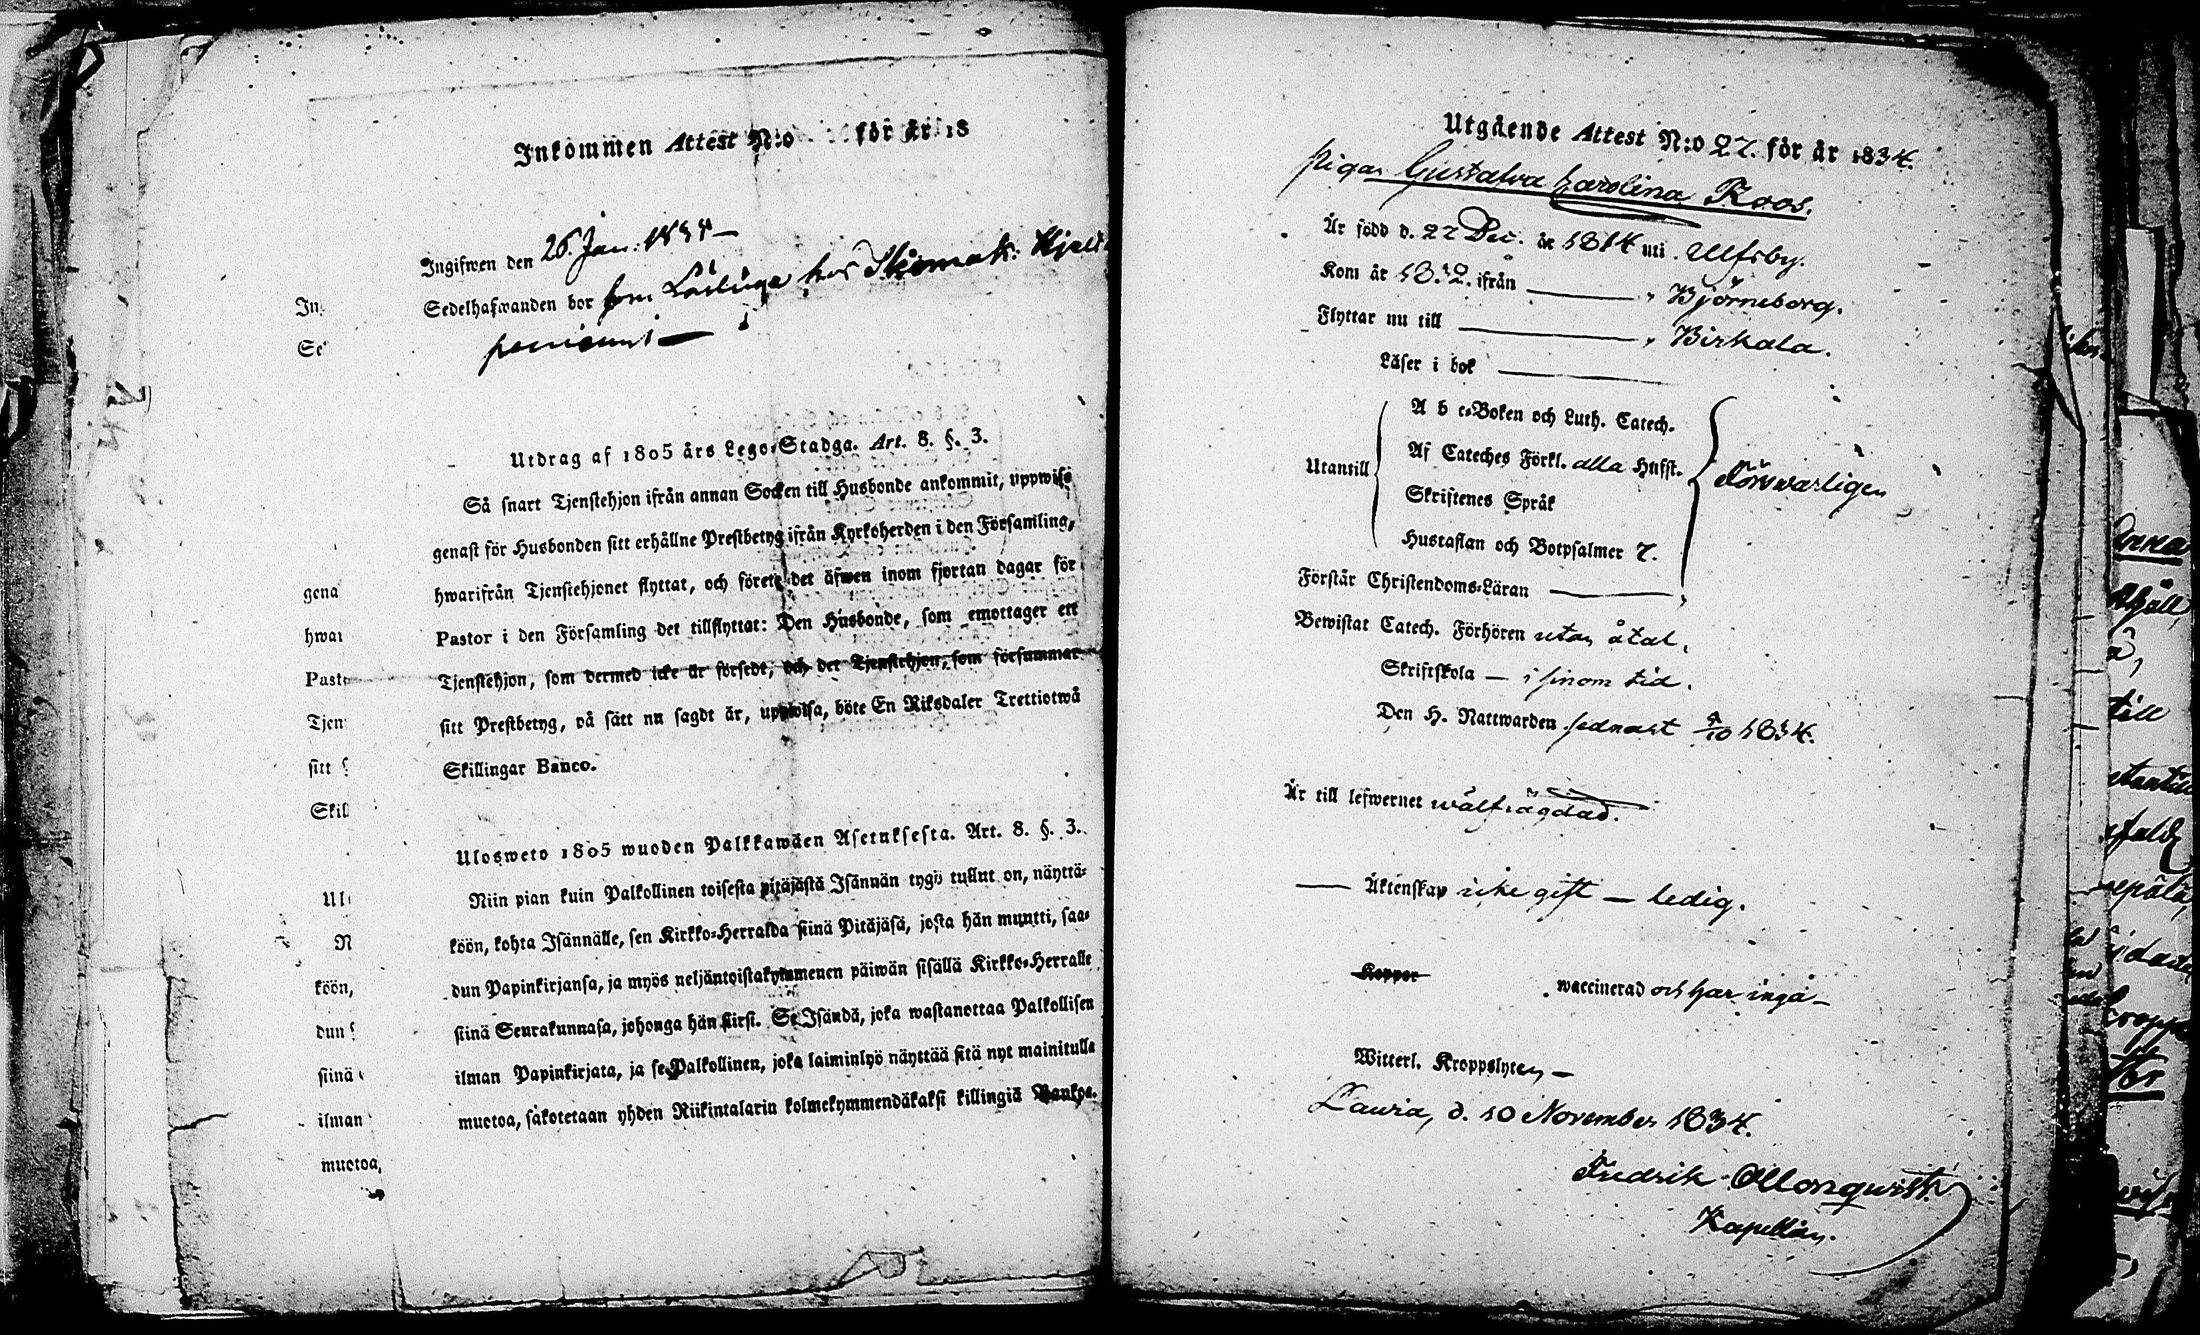 Inkommen Attest N:o för år 18
Ingifwen den 26. Jan: 18
Sedelhafwanden bor som hos Skomak:
Utdrag af 1805 års Lego-Stadga. Art. 8. §. 3.
Så snart Tjenstehjon ifrån annan Socken till Husbonde ankommit, uppwise
genast för Husbonden sitt erhållne Prestbetyg ifrån Kyrkoherden i den Församling,
hwarifrån Tjenstehjonet flyttat, och förete det äfwen inom fjortan dagar för
Pastor i den Församling det tillflyttat: Den Husbonde, som emottager ett
Tjenstehjon, som dermed icke är försedt, och det Tjenstehjon, som försummar
sitt Prestbetyg, på sätt nu sagdt är, uppwisa, böte En Riksdaler Trettiotwå
Skillingar Banco.
Ulosweto 1805 wuoden Palkkawäen Asetuksesta. Art. 8. §. 3.
Niin pian kuin Palkollinen toisesta pitäjästä Isännän tygö tullut on, näyttä-
köön, kohta Isännälle, sen Kirkko-Herralda siinä Pitäjäsä, josta hän muutti, saa-
dun Papinkirjansa, ja myös neljäntoistakymmenen päiwän sisällä Kirkko-Herralle
siinä Seurakunnasa, johonga hän siirsi. Se Isändä, joka wastanottaa Palkollisen
ilman Papinkirjata, ja se Palkollinen, joka laiminlyö näyttää sitä nyt mainitulla
muotoa, sakotetaan yhden Riikintalarin kolmekymmendäkaksi killingiä Bankos.
In
Se
gena
hwar
Past
Tjen
sitt
Skill
Ul
N
köön,
dun
siinä
ilman
muotoa,
Utgående Attest N:o 27. för år 1834.
Pigan Gustafva Karolina Roos.
Är född d. 22 Dec. år 1814 uti Ulfsby.
Kom år 1832. ifrån — " Björneborg.
Flyttar nu till — " Birkala.
Läser i bok —
A b c-Boken och Luth. Catech.
Af Cateches Förkl. alla Hufst.
Utantill { } försvarligen
Skriftenes Språk
Hustaflan och Botpsalmer 7.
Förstår Christendoms-Läran —
Bewistat Catech. Förhören utan åtal.
Skriftskola — i sinom tid.
Den H. Nattwarden sednast 1834.
Är till lefwernet wälfrägdad.
— Äktenskap icke gift — ledig.
Koppor waccinerad och har inga —
Witterl. Kroppslyten —
Lawia, d. 10 November 1834.
Fredrik
Kapellan.
Anna
till